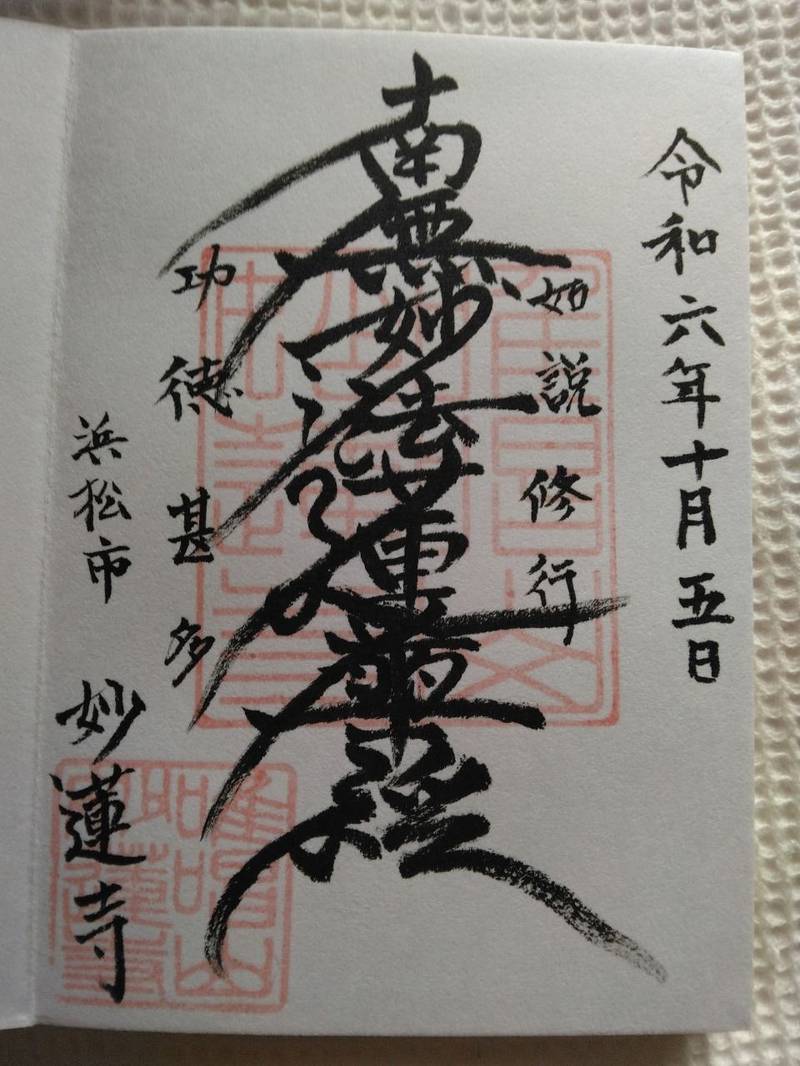 令和六年十月五日
如説修行
南無妙法蓮華経
功徳甚多
浜松市 妙蓮寺